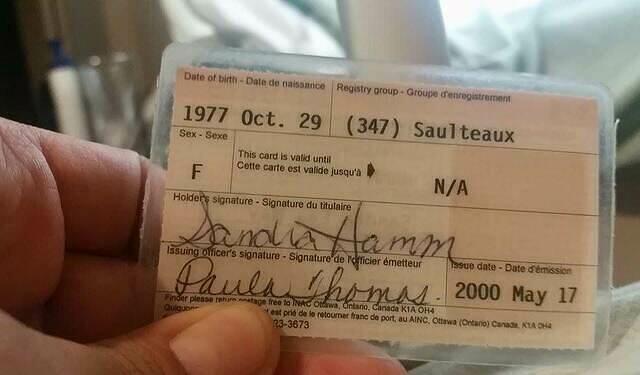 Date of birth - Date de naissance
Registry group - Groupe d'enregistrement
1977 Oct. 29
(347) Saulteaux
Sex - Sexe
F
This card is valid until
Cette carte est valide jusqu'à
N/A
Holder's signature - Signature du titulaire
Sandra Hamm
Issuing officer's signature - Signature de l'officier émetteur
Issue date - Date d'émission
Paula Thomas.
2000 May 17
Finder please return postage free to INAC Ottawa, Ontario, Canada K1A 0H4
est prié de le retourner franc de port, au AINC, Ottawa (Ontario) Canada, K1A 0H4
23-3673